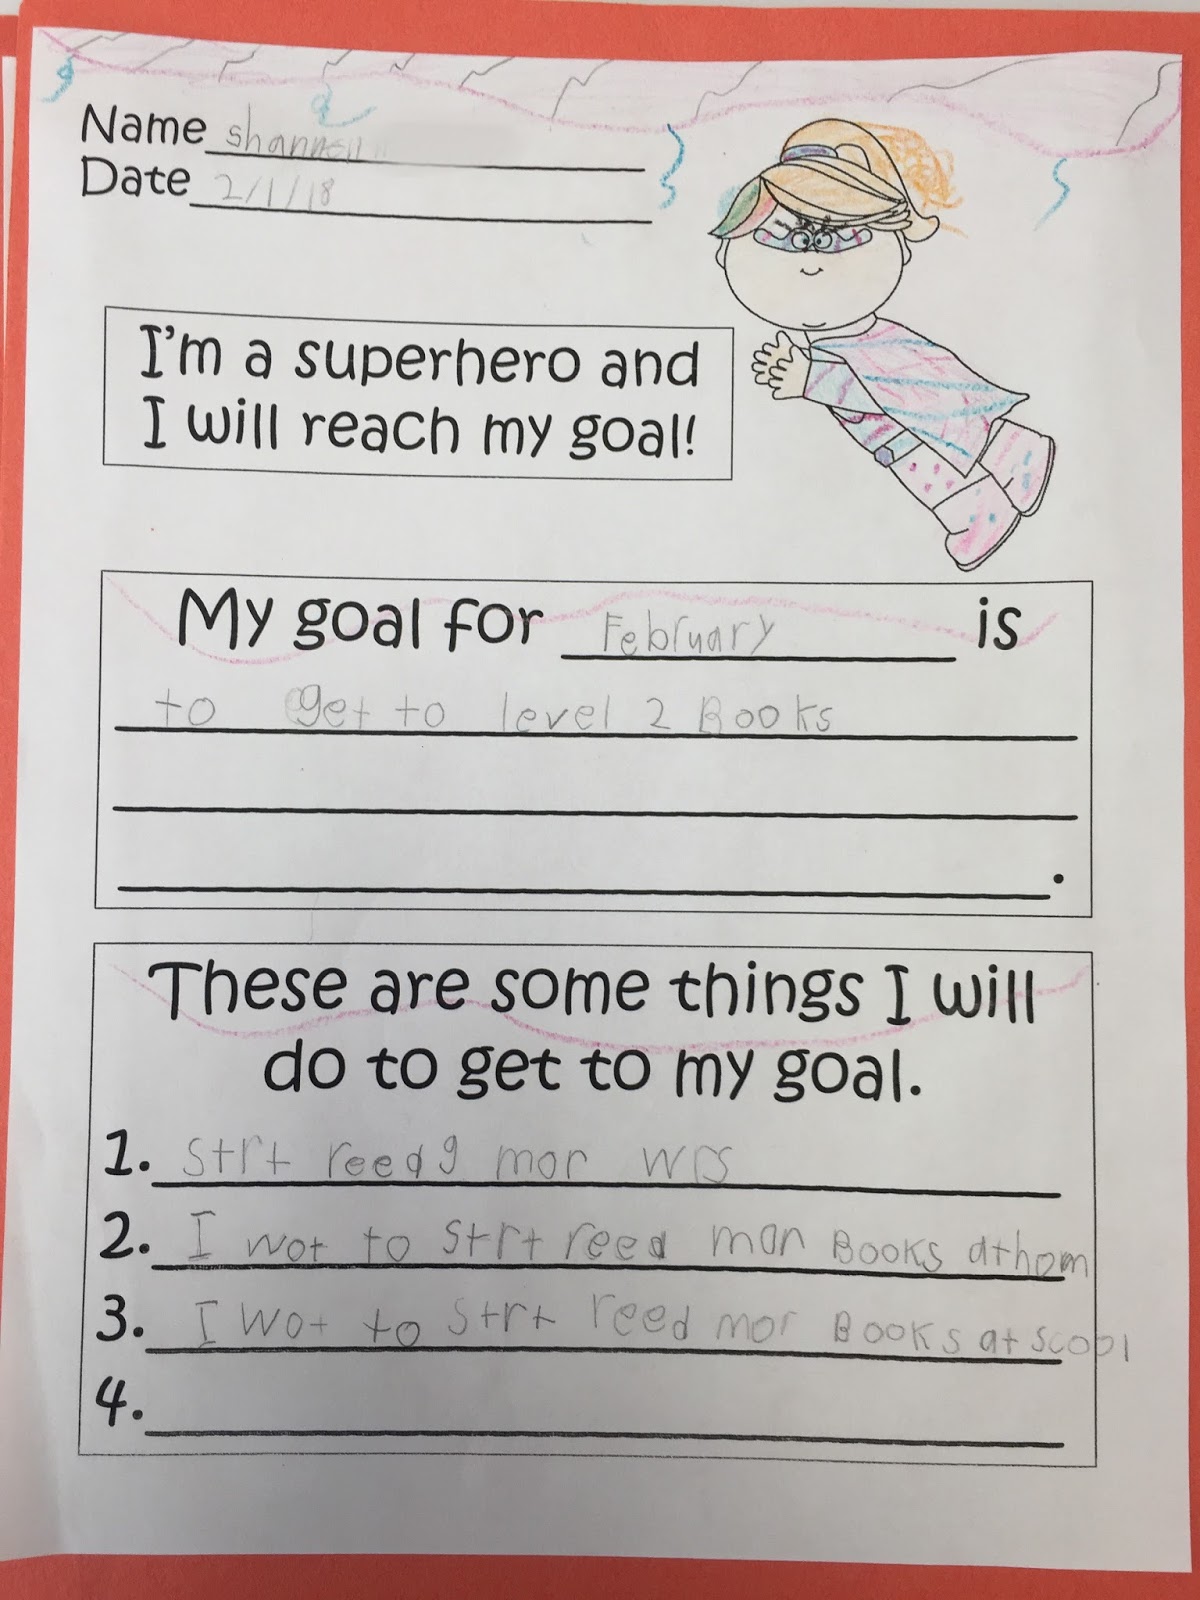 Name shannell
Date 2/1/18
I'm a superhero and
I will reach my goal!
My goal for February is
to get to level 2 Books
.
These are some things I will
do to get to my goal.
1. Strt reedg mor wrs
2. I wot to strt reed mor Books at hom
3. I wot to strt reed mor Books at scool
4.